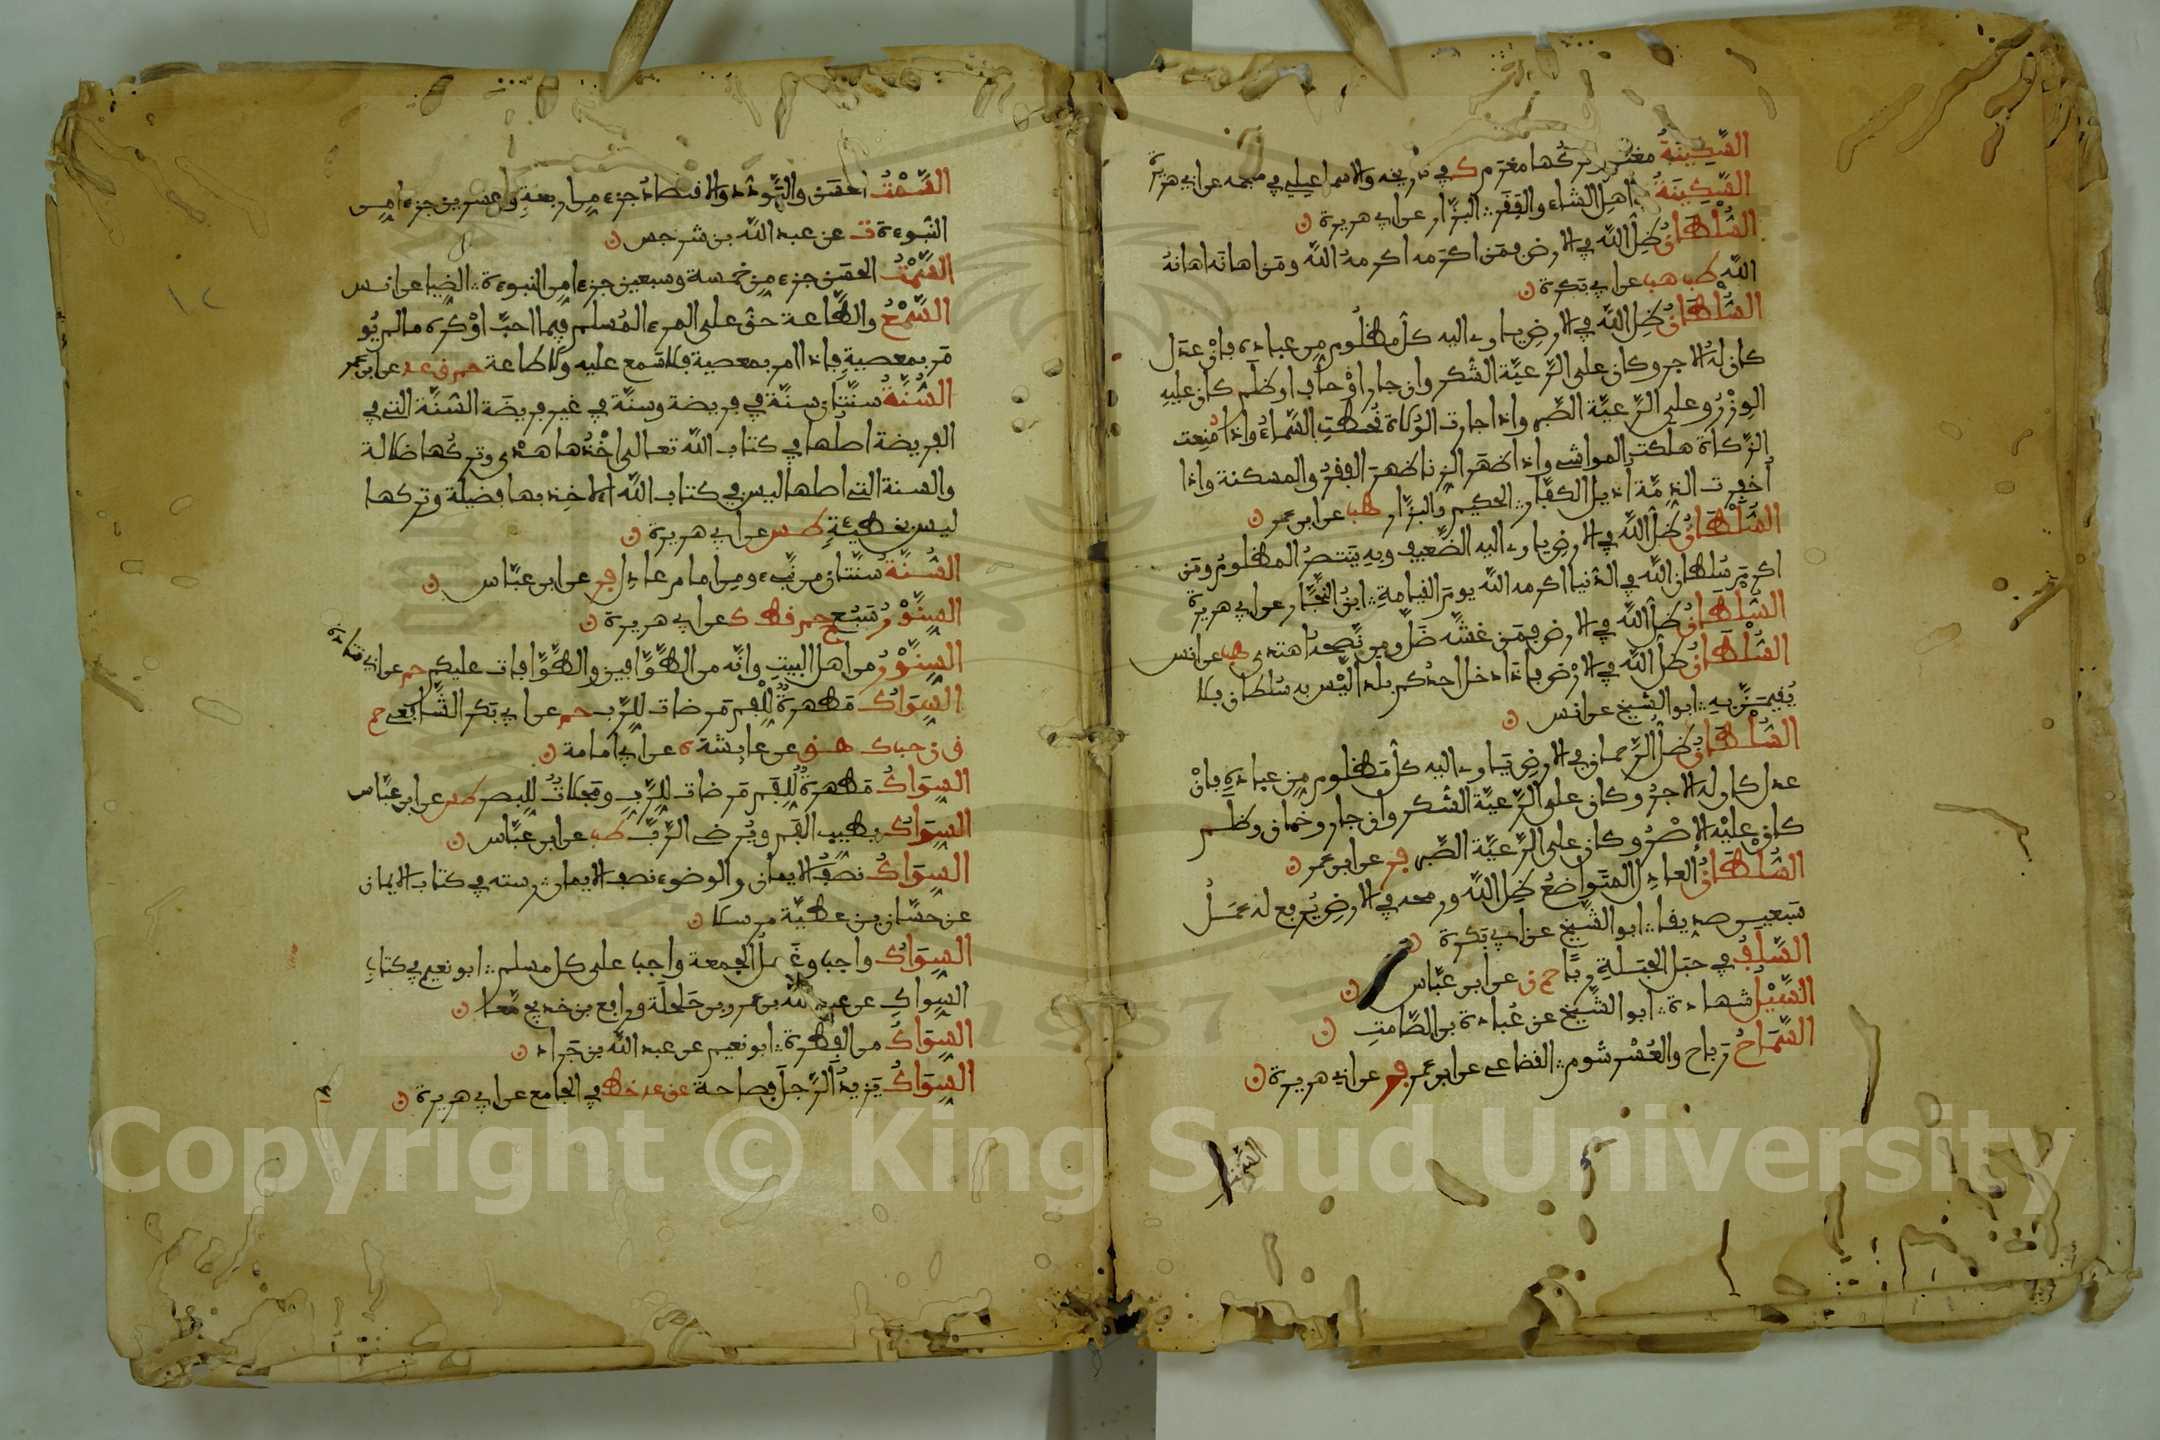 السَّكِينَةُ مغنم وتركها مغرم ك في تاريخه والاسماعيلي في معجمه عن ابي هريرة
السَّكِينَةُ في اهل الشاء والبقر البزّار عن ابي هريرة
السُّلْطَانُ ظِلُّ اللّه في الارض فمن اكرمه اكرمه اللّه ومن اهانه اهانه
اللّه طب هب عن ابي بكرة
السُّلْطَانُ ظِلُّ اللّه في الارض ياوي اليه كل مظلوم من عباده فإن عدل
كان له الاجر وكان على الرّعيّة الشكر وان جار او حاف او ظلم كان عليه
الوِزْرُ وعلى الرّعيّة الصّبر واذا جارت الولاة قحطت السّماءُ واذا مُنِعت
الزّكاة هلكت المواشي واذا ظهر الزنا ظهر الفقر والمسكنة واذا
أُخفرت الذمّة أديل الكفّار الحكيم والبزّار هب عن ابن عمر
السُّلْطَانُ ظلّ اللّه في الارض ياوي اليه الضّعيف وبه ينتصرُ المظلومُ ومن
اكرم سُلطان اللّه في الدّنيا اكرمه اللّه يوم القيامة ابنُ النّجّار عن ابي هريرة
السُّلْطَانُ ظلّ اللّه في الارض فمن غشّه ضلّ ومن نصحه اهتدى هب عن انس
السُّلْطَانُ ظلّ اللّه في الارْض فاذا دخل احدُكم بلدا ليْس به سُلطان فلا
يُقيمنّ به ابو الشّيخ عن انس
السُّلْطَانُ ظلّ الرّحمان في الارض ياوي اليه كل مظلوم من عباده فإنْ
عدل كان له الاجرُ وكان على الرّعيّة الشكر وان جار وخان وظلم
كان عليْه الإصْرُ وكان على الرّعيّة الصّبر فر عن ابن عمر
السُّلْطَانُ العادل المتواضعُ ظل اللّه ورمحه في الارض يُرفع له عمَلُ
سبعين صديقا ابو الشّيخ عن ابي بكرة
السَّلَفُ في حبَل الحبَلةِ ربًا حم ن عن ابن عبّاس
السَّيْلُ شهادة ابو الشّيخ عن عُبادة بن الصّامت
السَّمَاحُ رَباح والعُسْر شوم القضاعي عن ابن عمر فر عن ابي هريرة
السَّمْتُ
السَّمْتُ الحسن والتّؤدة والاقتصادُ جزء من اربعة وعشرين جزءا من
النبوءة ت عن عبد اللّه بن سرجس
السَّمْتُ الحسَن جزء من خمسة وسبعين جزءا من النبوءة الضيا عن انس
السَّمْعُ والطّاعة حقّ على المرء المُسلم فيما احبّ اوْ كره ما لم يُو
مَر بمعصية فإذا امر بمعصية فلا سمع عليه ولا طاعة حم ق عد عن ابن عمر
السُّنَّةُ سنّتان سنّة في فريضة وسنّة في غير فريضَة السّنّة التي في
الفريضة اصلها في كتاب اللّه تعالى اخْذُها هدى وتركُها ضلالة
والسنة التي اصلها ليس في كتاب اللّه الاخذ بها فضيلة وتركها
ليس بخطيئة طس عن ابي هريرة
السُّنَّةُ سنّتان من نّبيء ومن امام عادل فر عن ابن عبّاس
السِّنَّوْرُ سَبُع حم قط ك عن ابي هريرة
السِّنَّوْرُ من اهل البيت وانّه من الطّوّافين والطّوّافات عليكم حم عن ابي قتادة
السِّوَاكُ مَطهرةٌ لِلْفم مَرضات للرّب حم عن ابي بكر الشّافعي حم
ن حب ك هق عن عايشة ه عن ابي امامة
السِّوَاكُ مَطهرةٌ لِلْفم مَرضات للرّب ومجلاةٌ للبصر طس عن ابن عبّاس
السِّوَاكُ يطيب الفم ويُرضي الرّبّ طب عن ابن عبّاس
السِّوَاكُ نصفُ الايمان والوضوء نصف الايمان رسته في كتاب الايمان
عن حسّان بن عطيّة مرسلا
السِّوَاكُ واجب وغُسلُ الجمعة واجب على كل مسلم ابو نعيم في كتاب
السِّواك عن عبد اللّه بن عمرو بن حَلحلَة ورافع بن خديج معًا
السِّوَاكُ من الفِطْرة ابو نعيم عن عبد اللّه بن جَراد
السِّوَاكُ يَزيدُ الرّجل فصاحةً عق عد خط في الجامع عن ابي هريرة
Copyright © King Saud University
1957